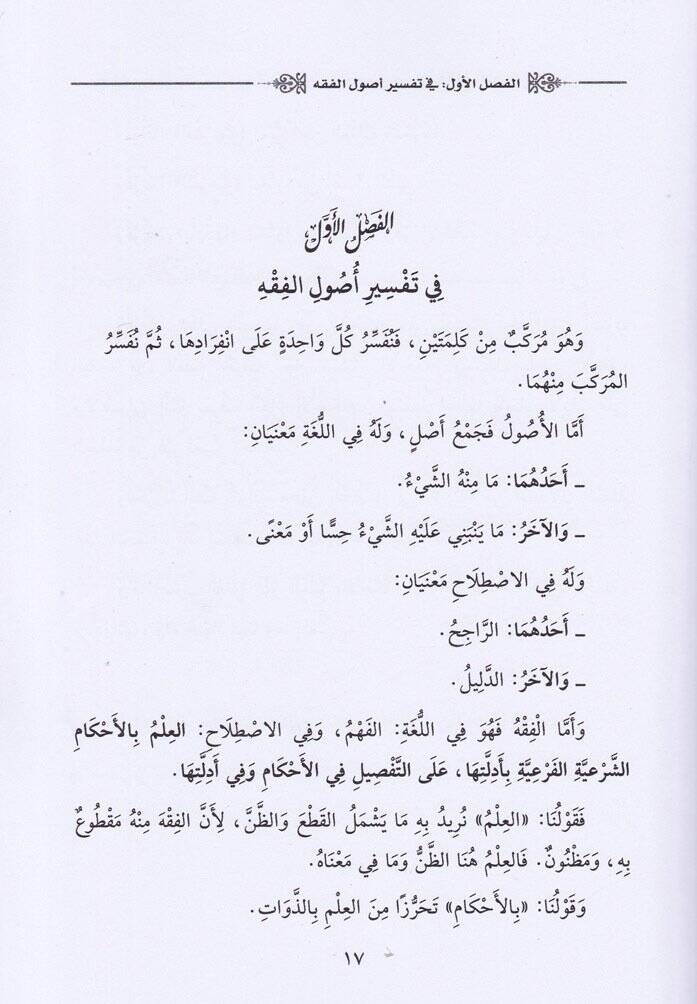 الفصل الأول: في تفسير أصول الفقه
الفَصْلُ الأَوَّلُ
فِي تَفْسِيرِ أُصُولِ الفِقْهِ
وَهُوَ مُرَكَّبٌ مِنْ كَلِمَتَيْنِ، فَنُفَسِّرُ كُلَّ وَاحِدَةٍ عَلَى انْفِرَادِهَا، ثُمَّ نُفَسِّرُ
المُرَكَّبَ مِنْهُمَا.
أَمَّا الأُصُولُ فَجَمْعُ أَصْلٍ، وَلَهُ فِي اللُّغَةِ مَعْنَيَانِ:
ـ أَحَدُهُمَا: مَا مِنْهُ الشَّيْءُ.
ـ وَالآخَرُ: مَا يَنْبَنِي عَلَيْهِ الشَّيْءُ حِسًّا أَوْ مَعْنًى.
وَلَهُ فِي الاصْطِلَاحِ مَعْنَيَانِ:
ـ أَحَدُهُمَا: الرَّاجِحُ.
ـ وَالآخَرُ: الدَّلِيلُ.
وَأَمَّا الْفِقْهُ فَهُوَ فِي اللُّغَةِ: الفَهْمُ، وَفِي الاصْطِلَاحِ: العِلْمُ بِالأَحْكَامِ
الشَّرْعِيَّةِ الفَرْعِيَّةِ بِأَدِلَّتِهَا، عَلَى التَّفْصِيلِ فِي الأَحْكَامِ وَفِي أَدِلَّتِهَا.
فَقَوْلُنَا: «العِلْمُ» نُرِيدُ بِهِ مَا يَشْمَلُ القَطْعَ وَالظَّنَّ، لِأَنَّ الفِقْهَ مِنْهُ مَقْطُوعٌ
بِهِ، وَمَظْنُونٌ. فَالعِلْمُ هُنَا الظَّنُّ وَمَا فِي مَعْنَاهُ.
وَقَوْلُنَا: «بِالأَحْكَامِ» تَحَرُّزًا مِنَ العِلْمِ بِالذَّوَاتِ.
١٧